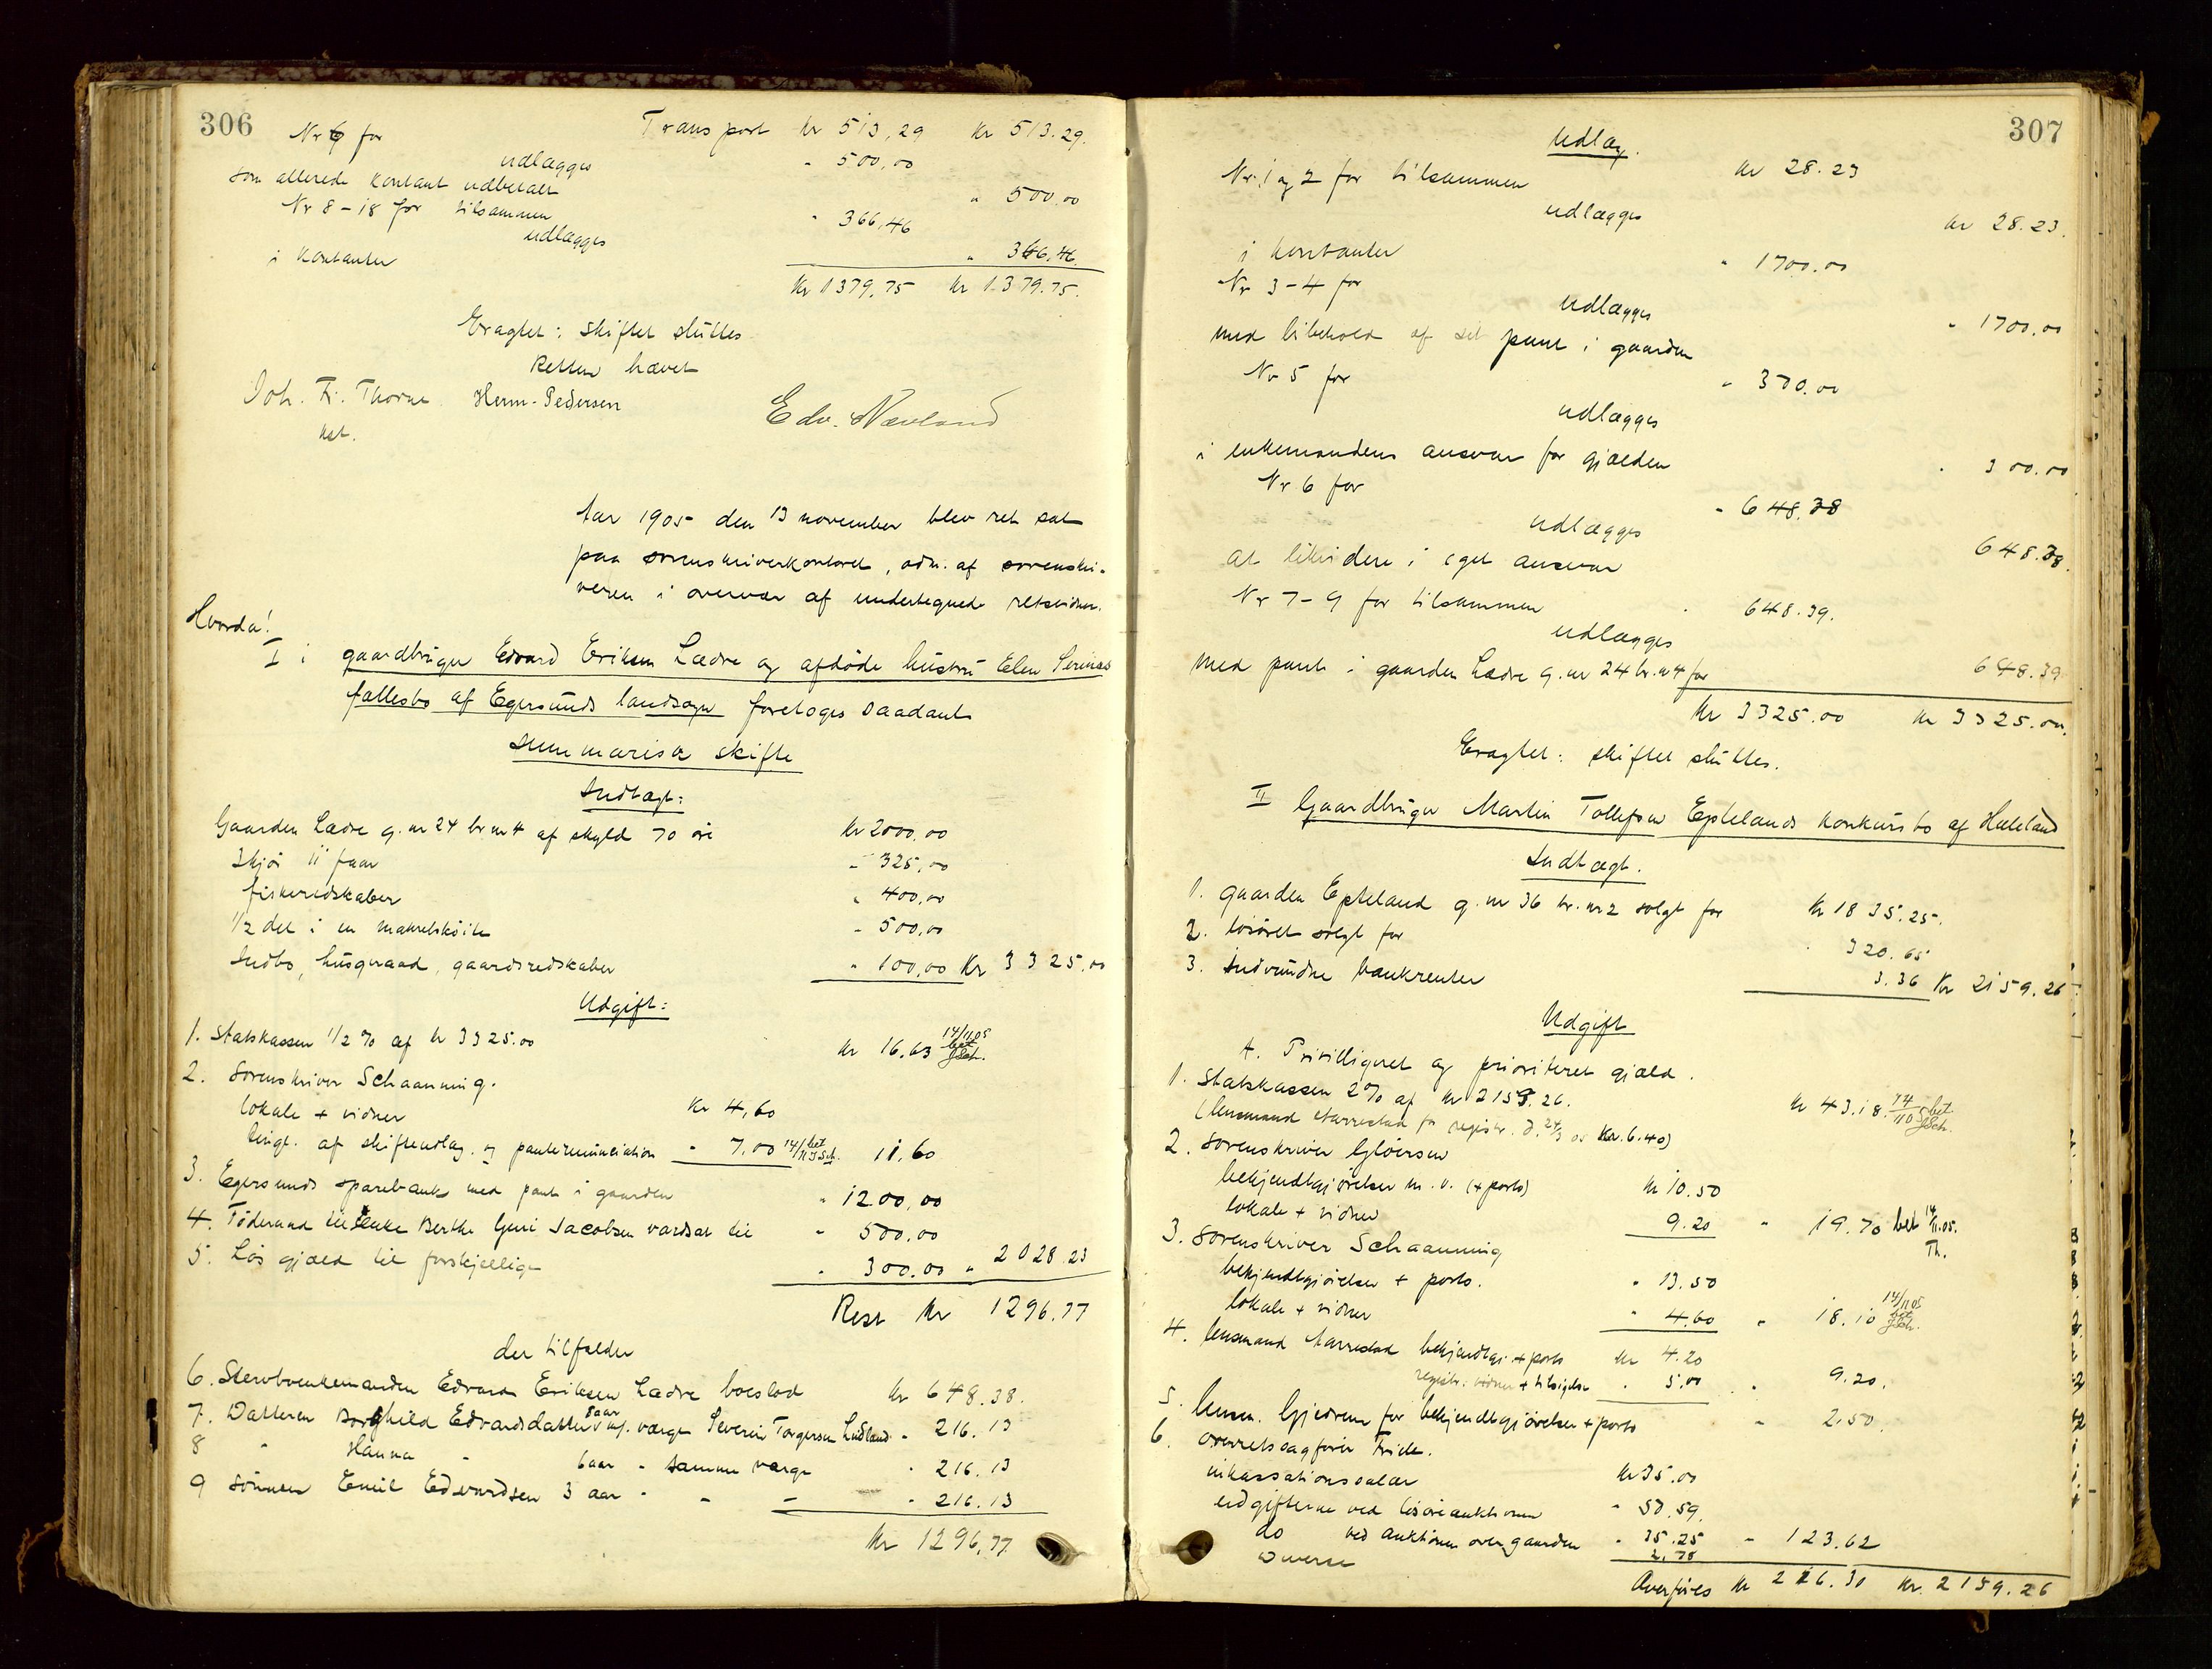 306
Transport Kr 513,29 Kr 513.29.
Nr 6 for " 500,00
udlægges
som allerede kontant udbetalt " 500.00
Nr 8-18 for tilsammen " 366,46
udlægges
i kontanter " 366.46.
Kr 1379,75 Kr 1379.75.
Eragtet: skiftet sluttes
Retten hævet
Joh. Fr. Thorne Herm. Pedersen Edv. Nævland
kst.
Aar 1905 den 13 november blev ret sat
paa sorenskriverkontoret, adm. af sorenskri-
veren i overvær af undertegnede retsvidner.
Hvorda!
I i gaardbruger Edvard Eriksen Lædre og afdøde hustru Elen Serines
fællesbo af Egersunds landsogn foretoges saadant
summarisk skifte
Indtægt:
Gaarden Lædre g. nr 24 br nr 4 af skyld 70 øre Kr 2000,00
3 kjør 11 faar " 325,00
fiskeredskaber " 400,00
1/2 del i en makrelskøite " 500,00
Indbo, husgeraad, gaardsredskaber " 100,00 Kr 3325.00
Udgift:
1. Statskassen 1/2 % af kr 3325.00 Kr 16.63 14/11 05 bet JSch.
2. Sorenskriver Schaanning.
lokale + vidner Kr 4,60
tingl. af skifteudlæg. og panterenunciation " 7,00 14/11 bet JSch. 11.60
3. Egersunds sparebank med pant i gaarden " 1200,00
4. Føderaad til enke Berthe Guri Jacobsen værdsat til " 500,00
5. Løs gjæld til forskjellige " 300.00 " 2028.23
Rest Kr 1296.77
der tilfalder
6. Stervboenkemanden Edvard Eriksen Lædre boeslod Kr 648.38.
7. Datteren Borghild Edvardsdatter 8 aar v/ værge Severin Torgersen Lædland " 216.13
8 " Hanna " 6 aar " samme værge " 216.13
9 Sønnen Emil Edvardsen 3 aar " " " " 216.13
Kr 1296.77
307
Udlæg.
Nr. 1 og 2 for tilsammen Kr 28.23
udlægges
i kontanter Kr 28.23.
Nr 3-4 for " 1700.00
udlægges
med bibehold af sit pant i gaarden " 1700.00
Nr 5 for " 300.00
udlægges
i enkemandens ansvar for gjælden " 300.00
Nr 6 for " 648.38
udlægges
at likvidere i eget ansvar 648.38.
Nr 7-9 for tilsammen " 648.39.
udlægges
med pant i gaarden Lædre g. nr 24 br. nr 4 for 648.39
Kr 3325.00 Kr 3325.00.
Eragtet: skiftet sluttes.
II Gaardbruger Martin Tollefsen Eptelands konkursbo af Heleland
Indtægt.
1. gaarden Epteland g. nr 36 br. nr 2 solgt for Kr 1835.25.
2. løsøret solgt for " 320.65
3. Indvundne bankrenter 3.36 Kr 2159.26
Udgift
A. Privilligeret og prioriteret gjæld.
1. Statskassen 2% af Kr 2159.26. Kr 43.18. 14/11 05 bet JSch.
(lensmand Aarrestad for registr. d. 24/3 05 Kr. 6.40)
2. Sorenskriver Gløersen
bekjendtgjørelser m. v. (+ porto) Kr 10.50
lokale + vidner 9.20 " 19.70 bet 14/11.05. Th.
3. Sorenskriver Schaanning
bekjendtgjørelser + porto. " 13.50
lokale + vidner " 4.60 " 18.10 14/11 05 bet JSch.
4. lensmand Aarrestad bekjendtgj. + porto Kr 4.20
registr. vidner + tilsigelse " 5.00 " 9.20.
5. lensm. Gjedrem for bekjendtgjørelser + porto " 2.50.
6. overretssagfører Friele.
inkassationssalær Kr 35.00
udgifterne ved løsøreauktionen " 50.59.
do ved auktionen over gaarden " 35.25 " 123.62
Diverse 2.78
Overføres Kr 216.30 Kr. 2159.26